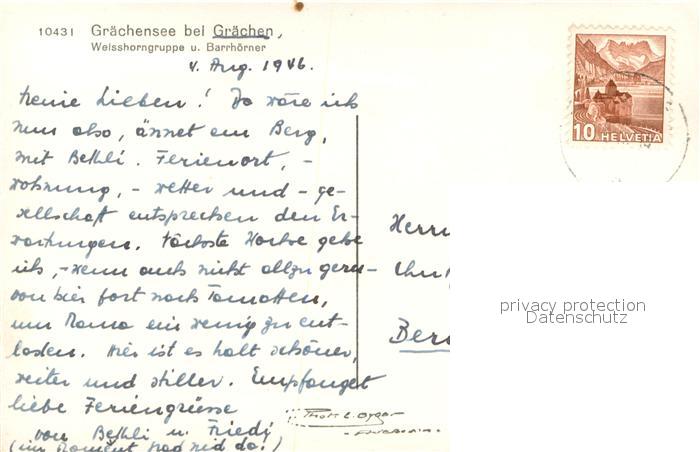 10431 Grächensee bei Grächen,
Weisshorngruppe u. Barrhörner
4. Aug. 1946.
Meine Lieben! Da wäre ich
nun also, ännet em Berg,
mit Bethli. Ferienort, -
wohnung, - wetter und - ge-
sellschaft entsprechen den Er-
wartungen. Nächste Woche gehe
ich, - wenn auch nicht allzu gern -
von hier fort nach
um Mama ein wenig zu ent-
lasten. Hier ist es halt schöner,
weiter und stiller. Empfanget
liebe Feriengrüsse
von Bethli u. Friedi
(im Moment grad nid da!)
10 HELVETIA
Herrn
Bern
privacy protection
Datenschutz
Phot.